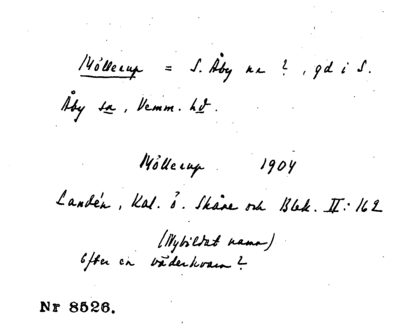 Möllerup = S. Åby nr ?, gd i S.
Åby sn, Vemm. hd.
Möllerup 1904
Landén, Kal. ö. Skåne och Blek. II: 162
(Nybildat namn)
Efter en väderkvarn?
Nr 8526.